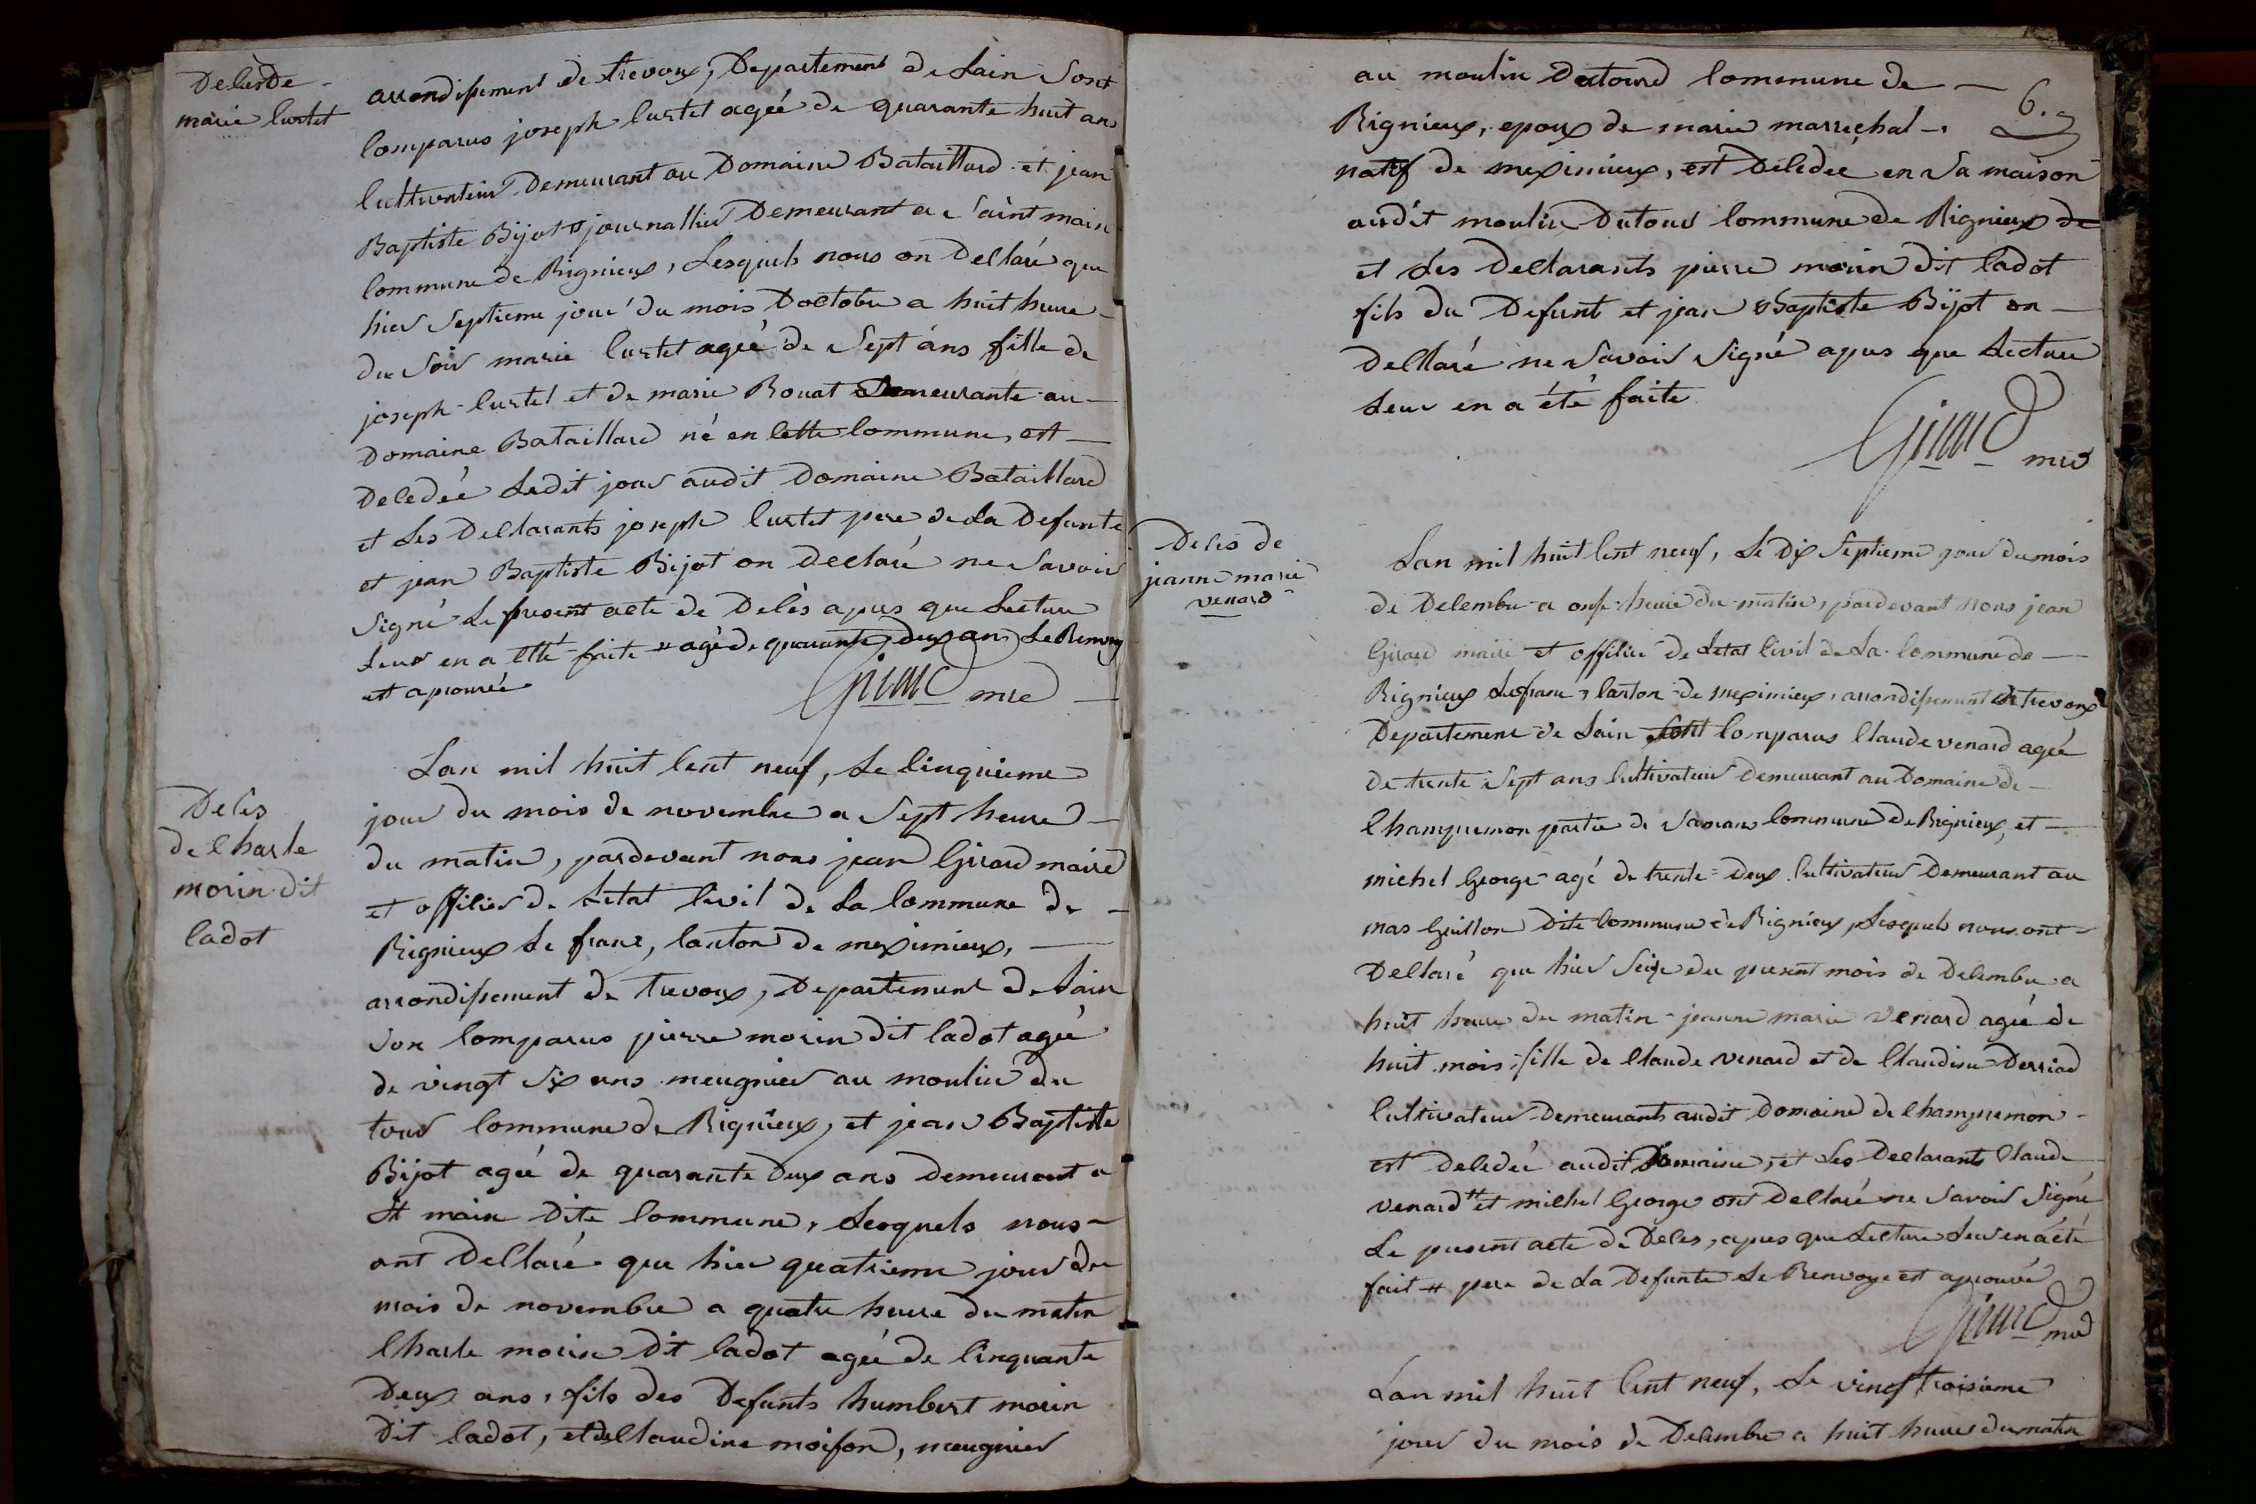 Deces De
marie Curtet
arrondisement de trevoux, Departement de Lain Sont
Comparus joseph Curtet ageé de quarante huit ans
Cultivateur Demeurant au Domaine Bataillard et jean
Baptiste Bijot # journallier Demeurant a Saint main
Commune de Rignieux, Lesquels nous on Declaré que
hier Septieme jour du mois Doctobre a huit heure
du Soir marie Curtet ageé de Sept ans fille de
joseph Curtet et de marie Bouat Demeurante au
Domaine Bataillard né en Cette Commune, est
Decedeé Ledit jour audit Domaine Bataillard
et Les Declarants joseph Curtet pere de La Defunte
et jean Baptiste Bijot on Declaré ne Savoir
Signé Le present acte de Decès apres que Lecture
Leur en a etté faite # agé de quarante deux ans Le Renvoy
est aprouvée
Girard mre
Deces
de Charle
morin dit
Cadot
Lan mil huit Cent neuf, Le Cinquieme
jour du mois de novembre a Sept heure
du matin, pardevant nous jean Girard maire
et officier de Letat Civil de La Commune de
Rignieux Le franc, Canton de meximieux,
arrondisement de trevoux, Departement de Lain
Son Comparus pierre morin dit Cadot ageé
de vingt Six ans meugnier au moulin du
tour Commune de Rignieux, et jean Baptiste
Bijot ageé de quarante Deux ans Demeurant a
St main Dite Commune, Lesquels nous
ont Declaré que hier quatrieme jour du
mois de novembre a quatre heure du matin
Charle morin Dit Cadot ageé de Cinquante
Deux ans, fils des Defunts humbert morin
Dit Cadot, et de Claudine moison, meugnier
au moulin Dutour Commune de
6.
Rignieux, epoux de marie marrechal
natif de meximieux, est Decedeé en Sa maison
audit moulin Dutour Commune de Rignieux de
et Les Declarants pierre morin dit Cadot
fils du Defunt et jean Baptiste Bijot on
Declaré ne Savoir Signé apres que Lecture
Leur en a été faite
Girard mre
Deces de
jeanne marie
venard
Lan mil huit Cent neuf, Le Dix Septieme jour du mois
de Decembre a onse heure du matin, pardevant nous jean
Girard maire et officier de Letat Civil de La Commune de
Rignieux Lefranc, Canton de meximieux, arrondisement de trevoux
Departement de Lain Sont Comparus Claude venard ageé
de trente Sept ans Cultivateur Demeurant au Domaine de
Champremon partie de Commune de Rignieux, et
michel George agé de trente Deux Cultivateur Demeurant au
mas Guillon Dite Commune de Rignieux, Lesquels nous ont
Declaré que hier Seize du present mois de Decembre a
huit heure du matin jeanne marie Venard ageé de
huit mois fille de Claude venard et de Claudine Derriad
Cultivateur Demeurants audit Domaine de Champremon
est Decedeé audit Domaine, et Les Declarants Claude
venard # et michel George ont Declaré ne Savoir Signé
Le present acte de Deces, apres que Lecture Leur en a été
fait # pere de La Defunte Le Renvoye est aprouvé
Girard mre
Lan mil huit Cent neuf, Le vingt troisieme
jour du mois de Decembre a huit heures du matin